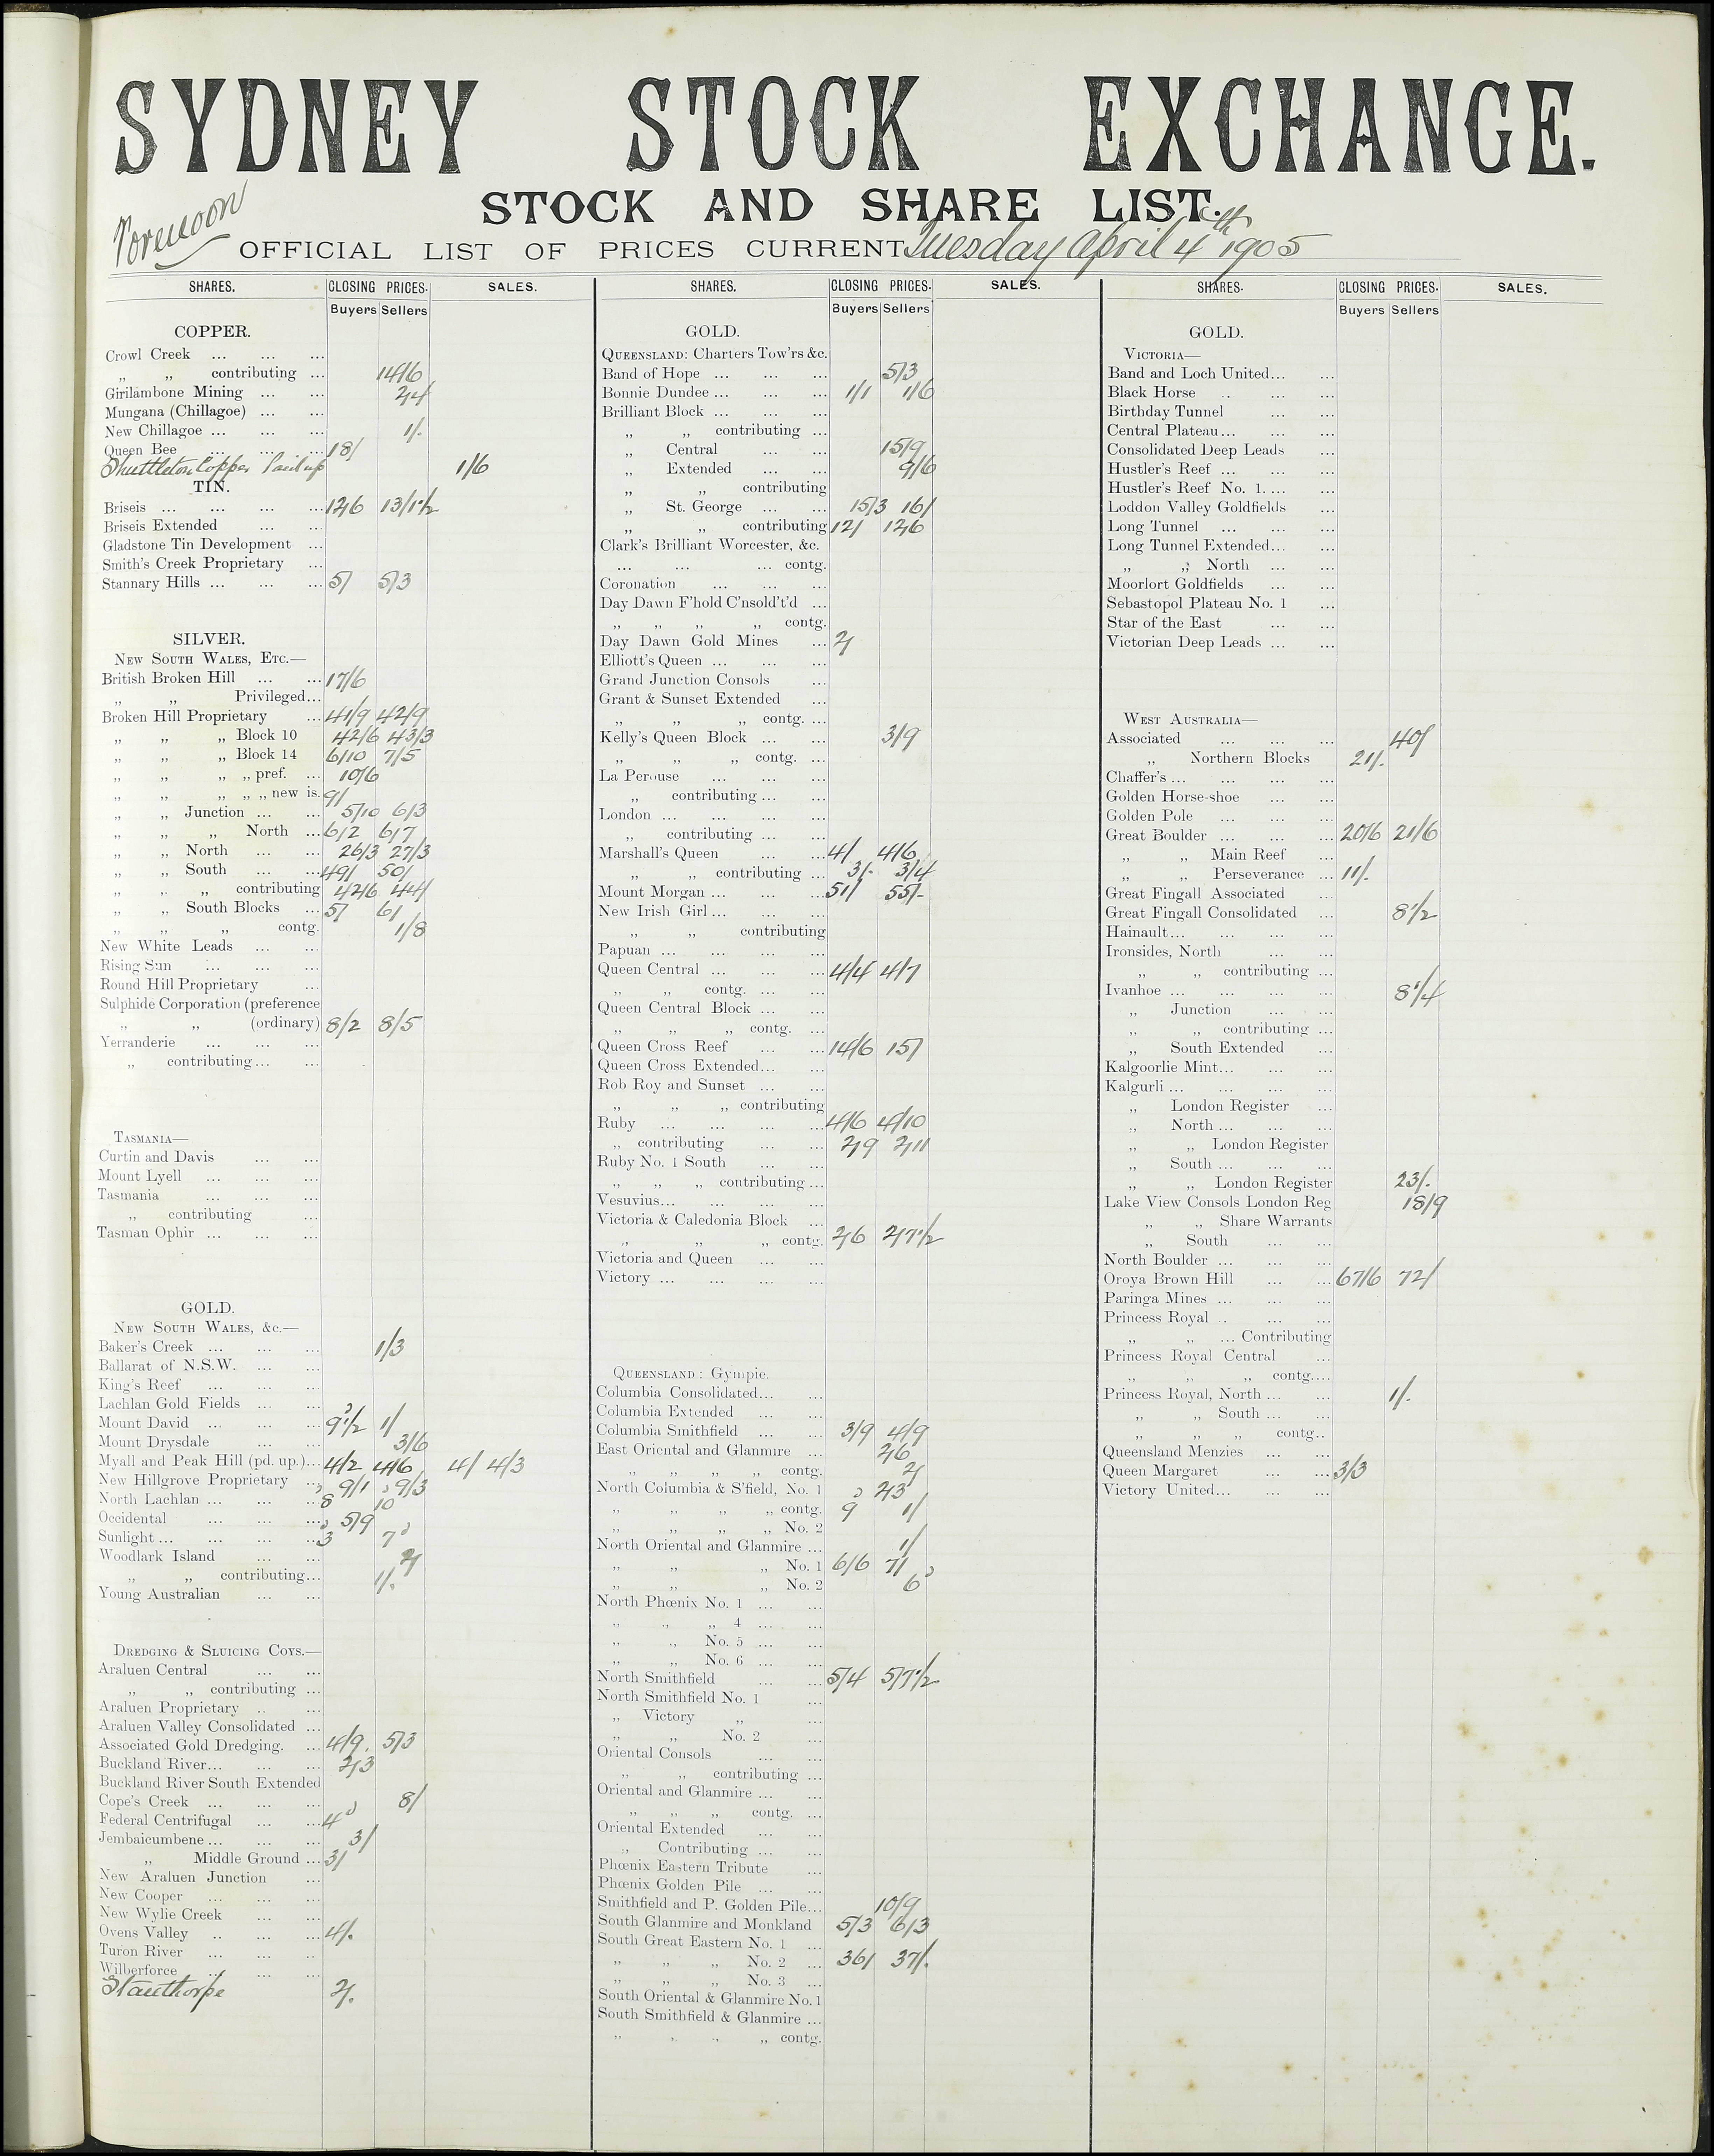 SYDNEY STOCK EXCHANGE.
STOCK AND SHARE LIST.
Forenoon
OFFICIAL LIST OF PRICES CURRENT Tuesday April 4th 1905
SHARES. CLOSING PRICES. SALES.
Buyers Sellers
COPPER.
Crowl Creek ... ... ...
„ „ contributing ... 14/6
Girilambone Mining ... ... 2/4
Mungana (Chillagoe) ... ...
New Chillagoe ... ... ... 1/-
Queen Bee ... ... ... 18/
Shuttleton Copper Paid up 1/6
TIN.
Briseis ... ... ... ... 12/6 13/1½
Briseis Extended ... ...
Gladstone Tin Development ...
Smith's Creek Proprietary ...
Stannary Hills ... ... ... 5/ 5/3
SILVER.
NEW SOUTH WALES, ETC.—
British Broken Hill ... ... 17/6
„ „ Privileged...
Broken Hill Proprietary ... 41/9 42/9
„ „ „ Block 10 42/6 43/3
„ „ „ Block 14 6/10 7/5
„ „ „ „ pref. ... 10/6
„ „ „ „ „ new is. 9/
„ „ Junction ... ... 5/10 6/3
„ „ „ North ... 6/2 6/7
„ „ North ... ... 26/3 27/3
„ „ South ... ... 49/ 50/
„ „ „ contributing 42/6 44/
„ „ South Blocks ... 5/ 6/
„ „ „ contg. 1/8
New White Leads ... ...
Rising Sun ... ... ...
Round Hill Proprietary ...
Sulphide Corporation (preference
„ „ (ordinary) 8/2 8/5
Yerranderie ... ... ...
„ contributing ... ...
TASMANIA—
Curtin and Davis ... ...
Mount Lyell ... ... ...
Tasmania ... ... ...
„ contributing ...
Tasman Ophir ... ... ...
GOLD.
NEW SOUTH WALES, &c.—
Baker's Creek ... ... ... 1/3
Ballarat of N.S.W. ... ...
King's Reef ... ... ...
Lachlan Gold Fields ... ...
Mount David ... ... ... 9½d 1/
Mount Drysdale ... ... 3/6
Myall and Peak Hill (pd. up.)... 4/2 4/6 4/ 4/3
New Hillgrove Proprietary ... 9/1 9/3
North Lachlan ... ... ... 8d 10d
Occidental ... ... ... 5/9
Sunlight ... ... ... ... 3d 7d
Woodlark Island ... ... 2/
„ „ contributing... 1/.
Young Australian ... ...
DREDGING & SLUICING COYS.—
Araluen Central ... ...
„ „ contributing ...
Araluen Proprietary .. ...
Araluen Valley Consolidated ...
Associated Gold Dredging. ... 4/9. 5/3
Buckland River... ... ... 2/3
Buckland River South Extended
Cope's Creek ... ... ... 8/
Federal Centrifugal ... ... 4d
Jembaicumbene ... ... ... 3/
„ Middle Ground ... 3/
New Araluen Junction ...
New Cooper ... ... ...
New Wylie Creek ... ...
Ovens Valley .. ... ... 4/.
Turon River ... ... ..
Wilberforce ... ... ...
Stanthorpe 2/.
SHARES. CLOSING PRICES. SALES.
Buyers Sellers
GOLD.
QUEENSLAND: Charters Tow'rs &c.
Band of Hope ... ... ... 5/3
Bonnie Dundee ... ... ... 1/1 1/6
Brilliant Block ... ... ...
„ „ contributing ...
„ Central ... ... 15/9
„ Extended ... ... 9/6
„ „ contributing
„ St. George ... ... 15/3 16/
„ „ contributing 12/ 12/6
Clark's Brilliant Worcester, &c.
... ... ... contg.
Coronation ... ... ...
Day Dawn F'hold C'nsold't'd ...
„ „ „ „ contg.
Day Dawn Gold Mines ... 2/
Elliott's Queen ... ... ...
Grand Junction Consols ...
Grant & Sunset Extended ...
„ „ „ contg. ...
Kelly's Queen Block ... ... 3/9
„ „ „ contg. ...
La Perouse ... ... ...
„ contributing ... ...
London ... ... ... ...
„ contributing ... ...
Marshall's Queen ... ... 4/ 4/6
„ „ contributing ... 3/- 3/4
Mount Morgan ... ... ... 51/ 55/-
New Irish Girl ... ... ...
„ „ contributing
Papuan ... ... ... ...
Queen Central ... ... ... 4/4 4/7
„ „ contg. ... ...
Queen Central Block ... ...
„ „ „ contg. ...
Queen Cross Reef ... ... 14/6 15/
Queen Cross Extended... ...
Rob Roy and Sunset ... ...
„ „ „ contributing
Ruby ... ... ... ... 4/6 4/10
„ contributing ... ... 2/9 2/11
Ruby No. 1 South ... ...
„ „ „ contributing ...
Vesuvius... ... ... ...
Victoria & Caledonia Block ...
„ „ „ contg. 2/6 2/7½
Victoria and Queen ... ...
Victory ... ... ... ...
QUEENSLAND: Gympie.
Columbia Consolidated... ...
Columbia Extended ... ...
Columbia Smithfield ... ... 3/9 4/9
East Oriental and Glanmire ... 2/6
„ „ „ „ contg. 2/
North Columbia & S'field, No. 1 2/3
„ „ „ „ contg. 9d 1/
„ „ „ „ No. 2
North Oriental and Glanmire ... 1/
„ „ „ No. 1 6/6 7/
„ „ „ No. 2 6d
North Phœnix No. 1 ... ...
„ „ „ 4 ... ...
„ „ No. 5 ... ...
„ „ No. 6 ... ...
North Smithfield ... ... 5/4 5/7½
North Smithfield No. 1 ...
„ Victory „ ...
„ „ No. 2 ...
Oriental Consols ... ...
„ „ contributing ...
Oriental and Glanmire ... ...
„ „ „ contg. ...
Oriental Extended ... ...
„ Contributing ... ...
Phœnix Eastern Tribute ...
Phœnix Golden Pile ... ...
Smithfield and P. Golden Pile... 10/9
South Glanmire and Monkland 5/3 6/3
South Great Eastern No. 1 ...
„ „ „ No. 2 ... 36/ 37/.
„ „ „ No. 3 ...
South Oriental & Glanmire No. 1
South Smithfield & Glanmire ...
„ „ „ „ contg.
SHARES. CLOSING PRICES. SALES.
Buyers Sellers
GOLD.
VICTORIA—
Band and Loch United... ...
Black Horse .. ... ...
Birthday Tunnel ... ...
Central Plateau... ... ...
Consolidated Deep Leads ...
Hustler's Reef ... ... ...
Hustler's Reef No. 1. ... ...
Loddon Valley Goldfields ...
Long Tunnel ... ... ...
Long Tunnel Extended... ...
„ „ North ... ...
Moorlort Goldfields ... ...
Sebastopol Plateau No. 1 ...
Star of the East ... ...
Victorian Deep Leads ... ...
WEST AUSTRALIA—
Associated ... ... ... 40/
„ Northern Blocks 21/.
Chaffer's ... ... ... ...
Golden Horse-shoe ... ...
Golden Pole ... ... ...
Great Boulder ... ... ... 20/6 21/6
„ „ Main Reef ...
„ „ Perseverance ... 11/.
Great Fingall Associated ...
Great Fingall Consolidated ... 8½
Hainault... ... ... ...
Ironsides, North ... ...
„ „ contributing ...
Ivanhoe ... ... ... ... 8¼
„ Junction ... ...
„ „ contributing ...
„ South Extended ...
Kalgoorlie Mint... ... ...
Kalgurli ... ... ... ...
„ London Register ...
„ North ... ... ...
„ „ London Register
„ South ... ... ...
„ „ London Register 23/.
Lake View Consols London Reg 18/9
„ „ Share Warrants
„ South ... ...
North Boulder ... ... ...
Oroya Brown Hill ... ... 67/6 72/
Paringa Mines ... ... ...
Princess Royal .. ... ...
„ „ ... Contributing
Princess Royal Central ...
„ „ „ contg....
Princess Royal, North ... ... 1/.
„ „ South ... ...
„ „ „ contg..
Queensland Menzies ... ...
Queen Margaret ... ... 3/3
Victory United... ... ...